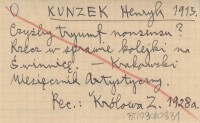 O KUNZEK Henryk 1913.
Czyżby tryumf nonsensu?
Rzecz w sprawie kolejki na
Świnnicę. — Krakowski
Miesięcznik Artystyczny.
Rec.: Królowa Z. 1928a.